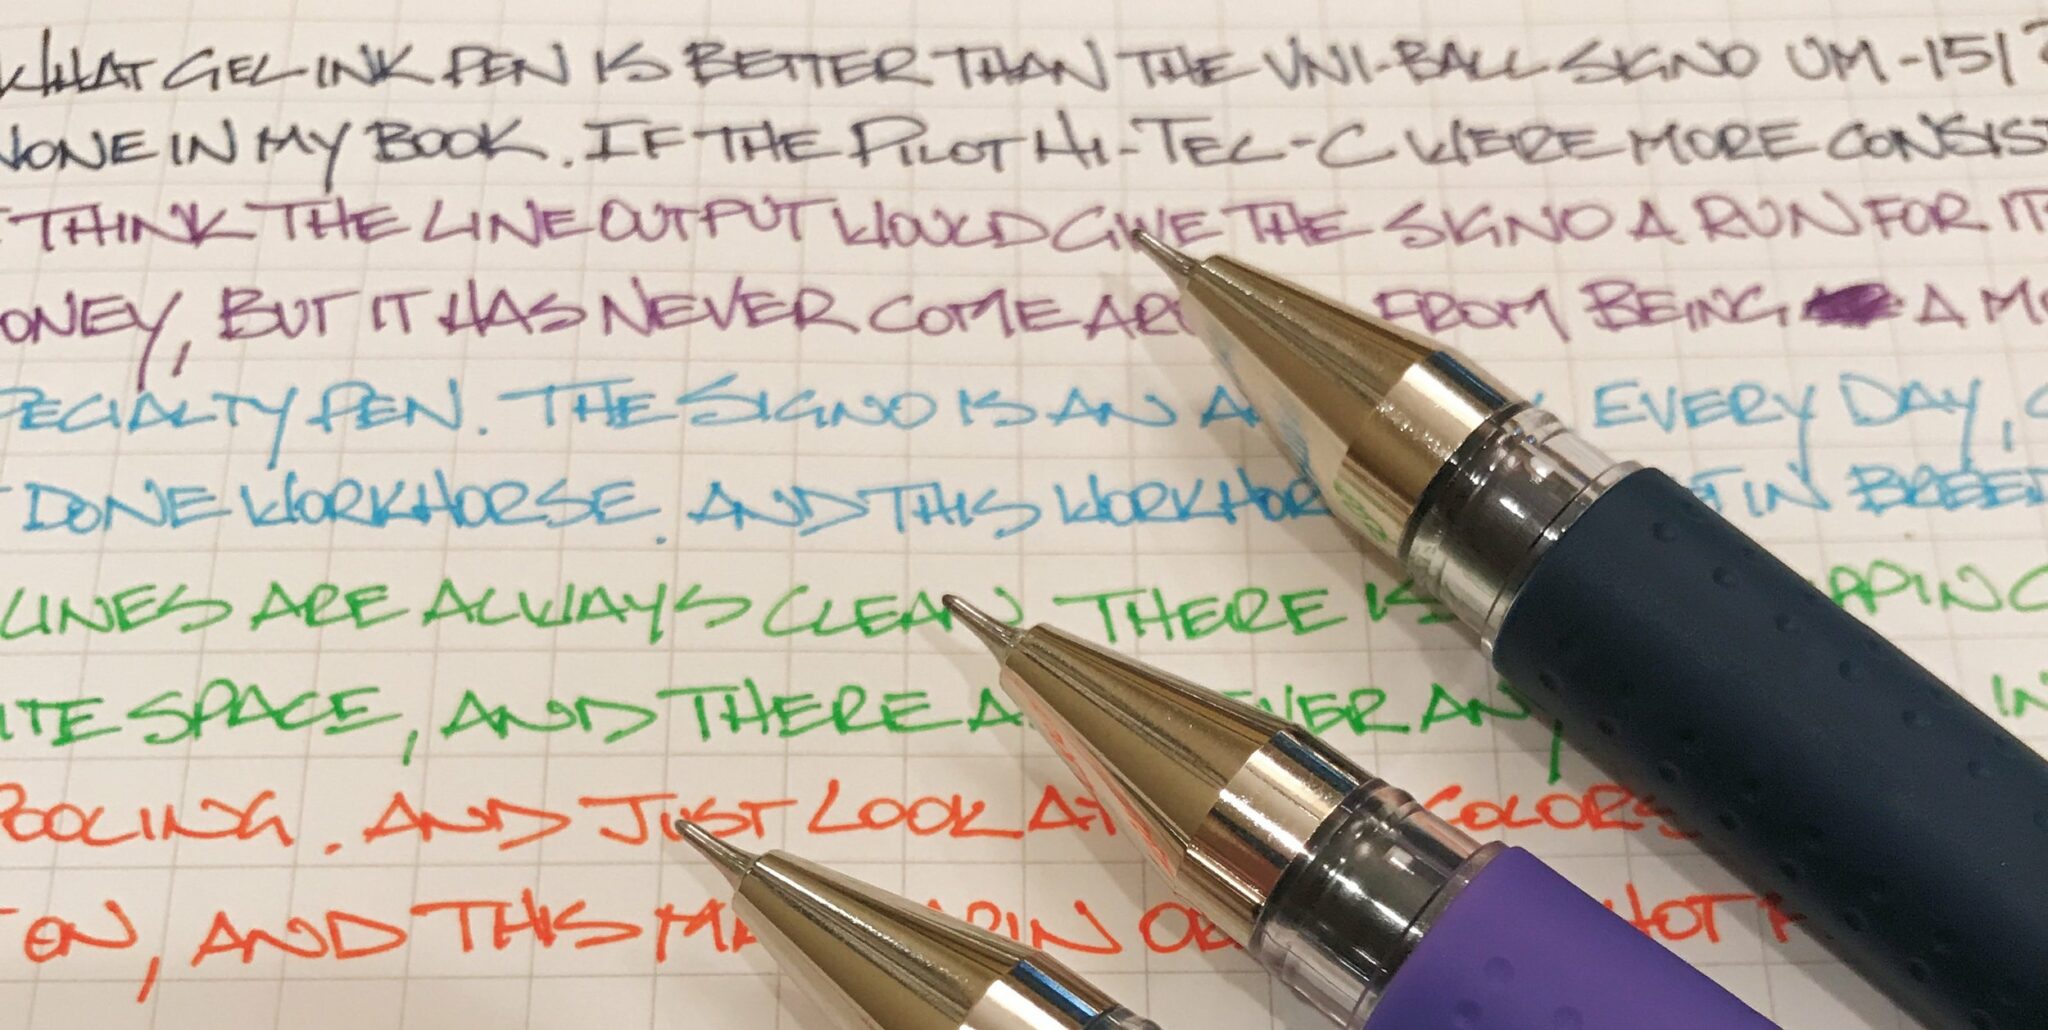 WHAT GEL INK PEN IS BETTER THAN THE UNI-BALL SIGNO UM-151?
NONE IN MY BOOK. IF THE PILOT HI-TEC-C WERE MORE CONSIST
I THINK THE LINE OUTPUT WOULD GIVE THE SIGNO A RUN FOR IT
ONEY, BUT IT HAS NEVER COME FROM BEING A
PECIALTY PEN. THE SIGNO IS AN EVERY DAY,
DONE WORKHORSE. AND THIS WORKHOR IN BREED
LINES ARE ALWAYS CLEAN THERE IS PPING
ITE SPACE, AND THERE EVER ANY IN
POOLING. AND JUST LOOK AT COLORS
EN, AND THIS HOT